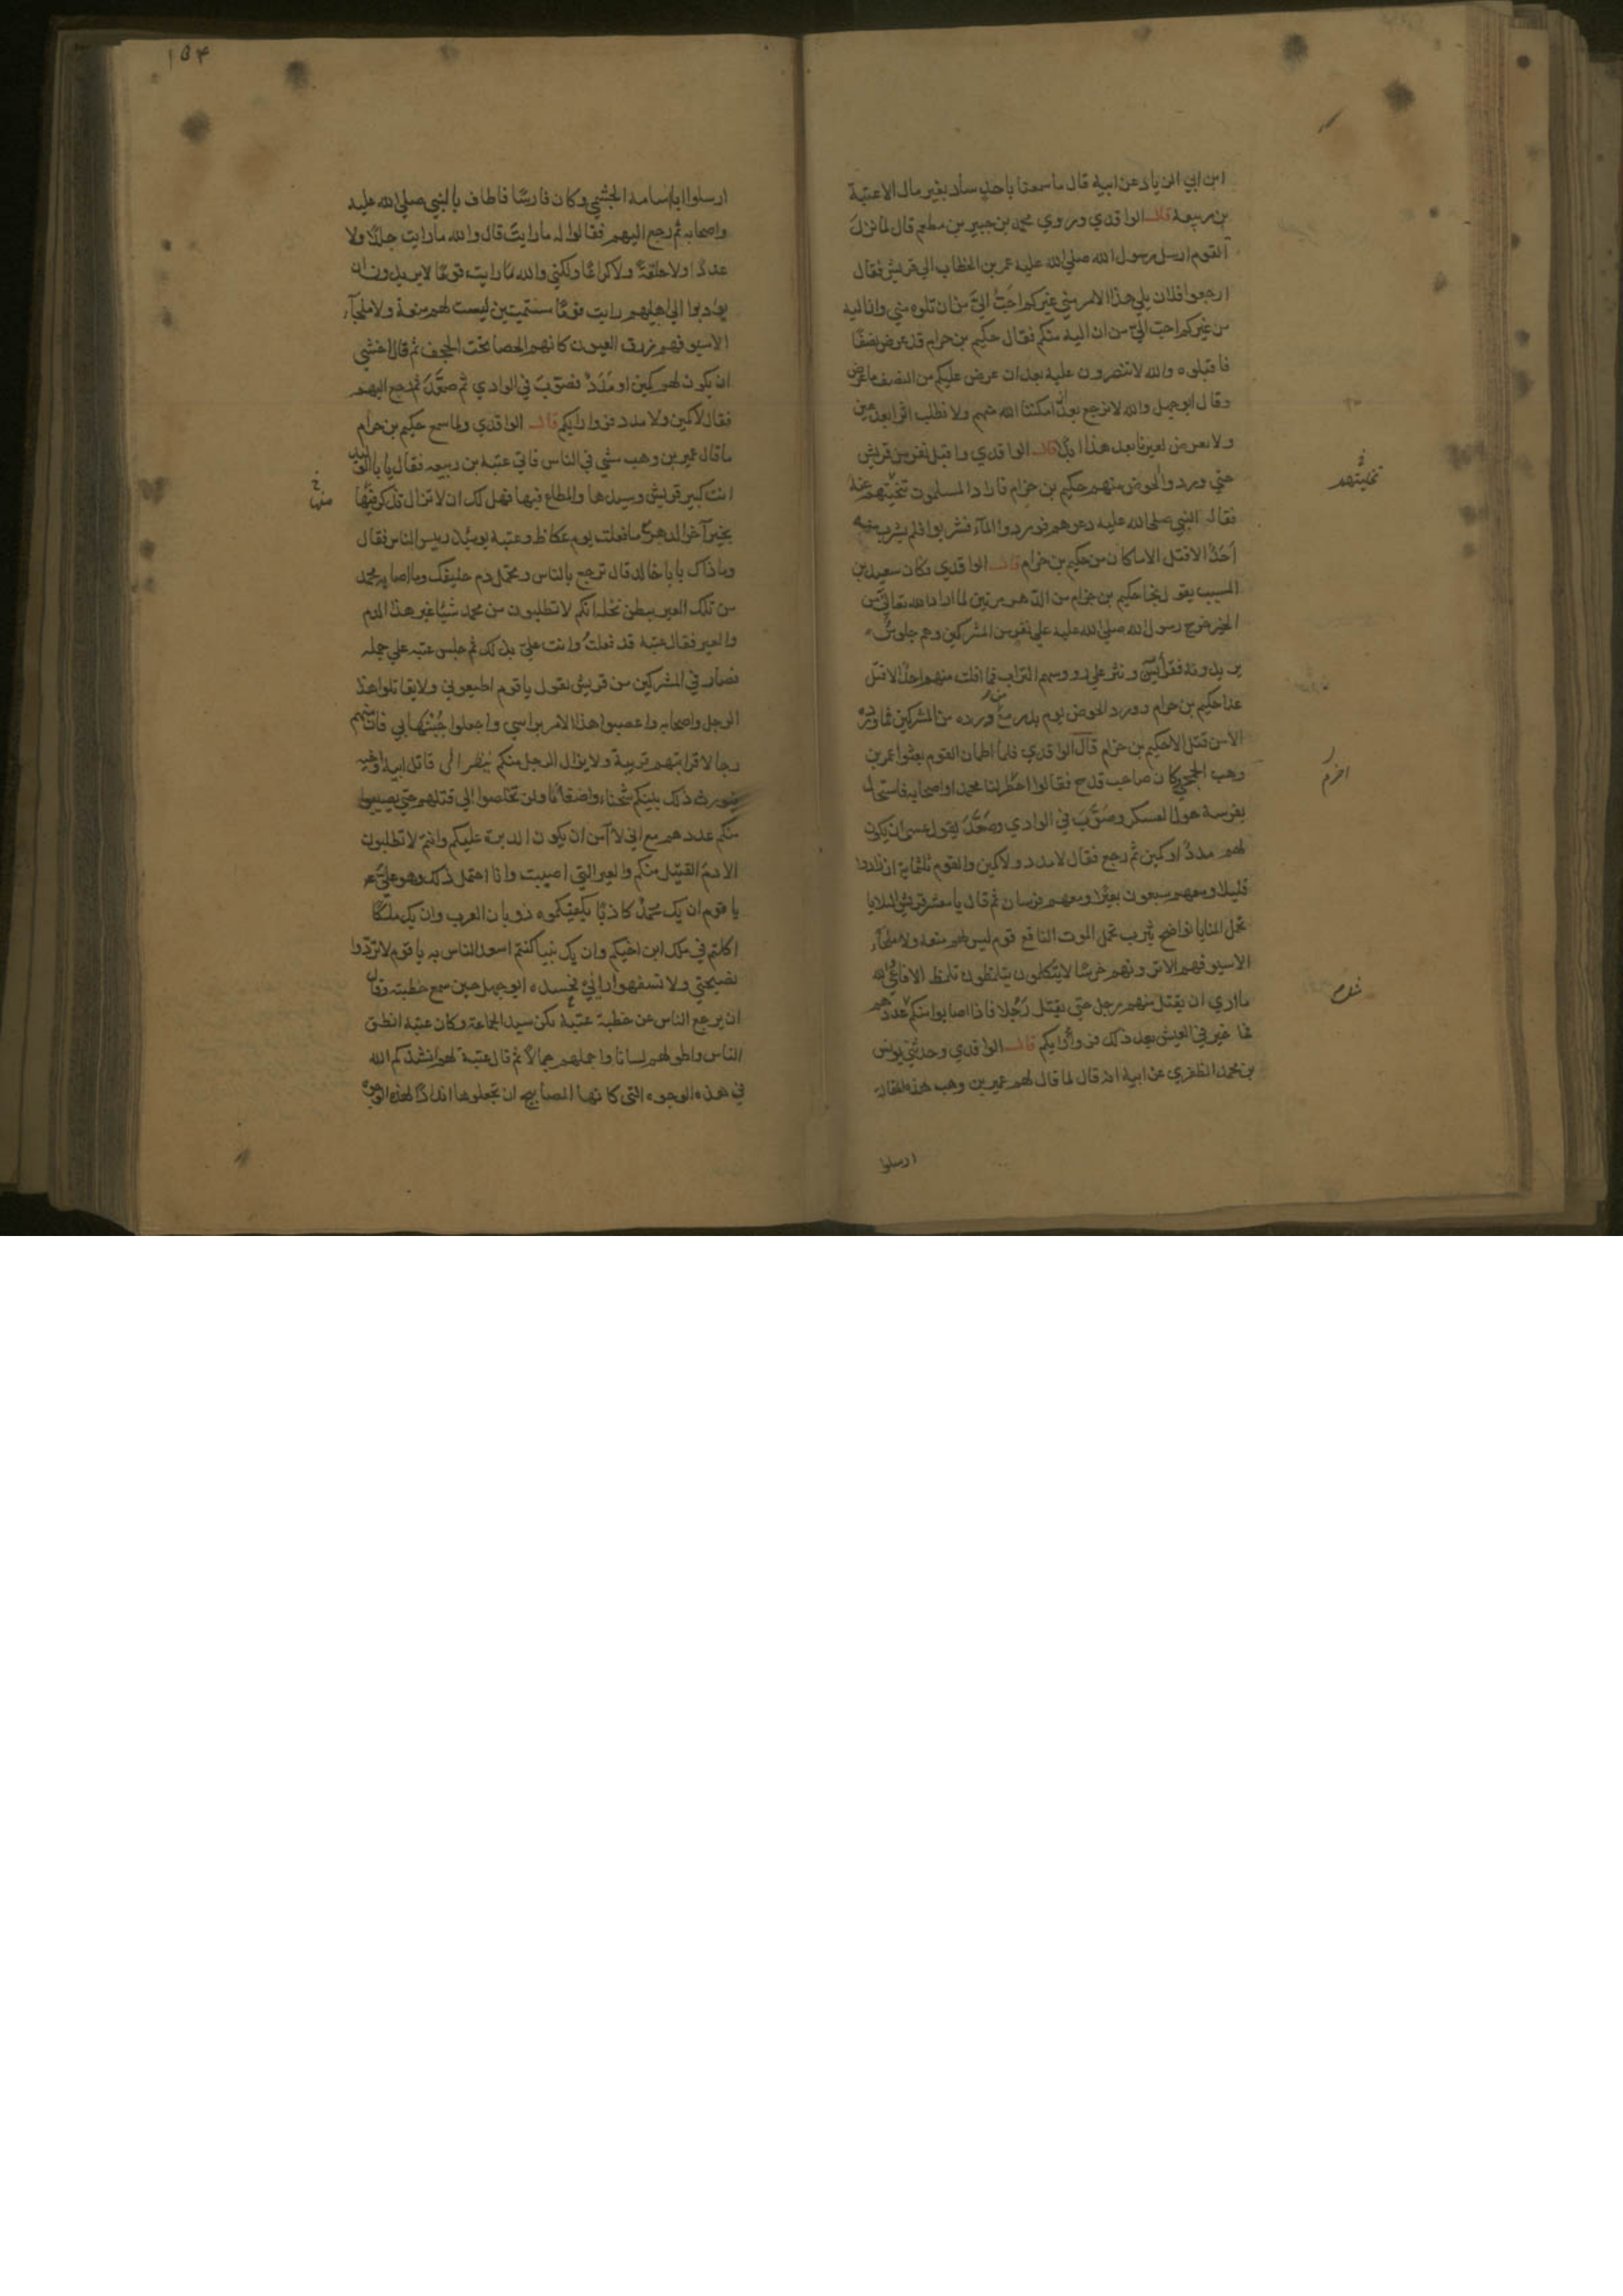 ابن ابي الزياد عن ابيه قال ما سمعنا باحد ساد بغير مال الا عتبة
بن ربيعة قال الواقدي وروي محمد بن جبير بن مطعم قال لما نزل
القوم ارسل رسول الله صلى الله عليه عمر بن الخطاب الي قريش فقال
ارجعوا فلان يلي هذا الامر مني غيركم احب الي من ان تلوه مني وان اليه
من غيركم احب الي من ان اليه منكم فقال حكيم بن حزام قد عرض نصفا
فاقبلوه والله لا تنصرون عليه بعد ان عرض عليكم من النصف ما عرض
وقال ابو جهل والله لا نرجع بعد ان امكننا الله منهم ولا نطلب اثرا بعد عين
ولا يعرض لعيرنا بعد هذا ابدا قال الواقدي واقبل نفر من قريش
حتي وردوا الحوض منهم حكيم بن حزام فاراد المسلمون تنحيتهم عنه
فقال النبي صلى الله عليه دعوهم فوردوا الماء فشربوا فلم يشرب منه
احد الا قتل الا ما كان من حكيم بن حزام قال الواقدي فكان سعيد بن
المسيب يقول نجا حكيم بن حزام من الدهر مرتين لما اراد الله تعالي به من
الخير خرج رسول الله صلى الله عليه علي نفر من المشركين وهم جلوس
يريدونه فقرأ يس ونثر علي رووسهم التراب فما افلت منهم احد الا قتل
عدا حكيم بن حزام وورد الحوض يوم بدر مع من ورده من المشركين فما ورده
الا من قتل الا حكيم بن حزام قال الواقدي فلما اطمان القوم بعثوا عمير بن
وهب الجمحي وكان صاحب قدح فقالوا احزر لنا محمدا واصحابه فاستجال
بفرسه حول العسكر وصوب في الوادي وصعد يقول عسي ان يكون
لهم مدد او كمين ثم رجع فقال لا مدد ولا كمين والقوم ثلثماية ان زادوا
قليلا ومعهم سبعون بعيرا ومعهم فرسان ثم قال يا معشر قريش البلايا
تحمل المنايا نواضح يثرب تحمل الموت الناقع قوم ليس لهم منعة ولا ملجآء
الا سيوفهم الا ترونهم خرسا لا يتكلمون يتلمظون تلمظ الافاعي والله
ما اري ان يقتل منهم رجل حتي يقتل رجلا فاذا اصابوا منكم عددهم
فما خير في العيش بعد ذلك فروا رايكم قال الواقدي وحدثني يونس
بن محمد الظفري عن ابيه انه قال لما قال لهم عمير بن وهب هذه المقالة
ارسلوا
تنحيتهم
احزر
١٥٤
ارسلوا ابا اسامة الجشمي وكان فارسا فاطاف بالنبي صلى الله عليه
واصحابه ثم رجع اليهم فقالوا له ما رايت قال والله ما رايت جلدا ولا
عددا ولا حلقة ولا كراعا ولكني والله رايت قوما لا يريدون ان
يودبوا الي اهليهم رايت قوما مستميتين ليست لهم منعة ولا ملجآء
الا سيوفهم زرق العيون كانهم الحصا تحت الحجف ثم قال اخشي
ان يكون لهم كمين او مدد فصوب في الوادي ثم صعد ثم رجع اليهم
فقال لا كمين ولا مدد فروا رايكم قال الواقدي ولما سمع حكيم بن حزام
ما قال عمير بن وهب مشي في الناس فاتي عتبة بن ربيعه فقال يا با الوليد
انت كبير قريش وسيدها والمطاع فيها فهل لك ان لا تزال تذكر فيها
بخير آخر الدهر مع ما فعلت يوم عكاظ وعتبة يومئذ رييس الناس فقال
وما ذاك يا با خالد قال ترجع بالناس وتحمل دم حليفك وما اصابه محمد
من تلك العير ببطن نخله انكم لا تطلبون من محمد شيئا غير هذا الدم
والعير فقال عتبة قد فعلت وانت علي بذلك ثم جلس عتبه علي جمله
فصار في المشركين من قريش يقول يا قوم اطيعوني ولا تقاتلوا هذا
الرجل واصحابه واعصبوا هذا الامر براسي واجعلوا جبنها بي فان منهم
رجالا قرابتهم قريبة ولا يزال الرجل منكم ينظر الي قاتل ابيه واخيه
فيورث ذلك بينكم شحناء واضغانا ولن تخلصوا الي قتلهم حتي يصيبوا
منكم عددهم مع اني لا آمن ان يكون الدبرة عليكم وانتم لا تطلبون
الا دم القتيل منكم والعير التي اصيبت وانا احتمل ذلك وهو علي
يا قوم ان يك محمد كاذبا يكفيكموه ذوبان العرب وان يك ملكا
اكلتم في ملك ابن اخيكم وان يك نبيا كنتم اسعد الناس به يا قوم لا تردوا
نصيحتي ولا تسفهوا رايي فحسده ابو جهل حين سمع خطبته وقال
ان يرجع الناس عن خطبة عتبة يكن سيد الجماعة وكان عتبة انطق
الناس واطولهم لسانا واجملهم جمالا ثم قال عتبة لهم انشدكم الله
في هذه الوجوه التي كانها المصابيح ان تجعلوها اندادا لهذه الوجوه